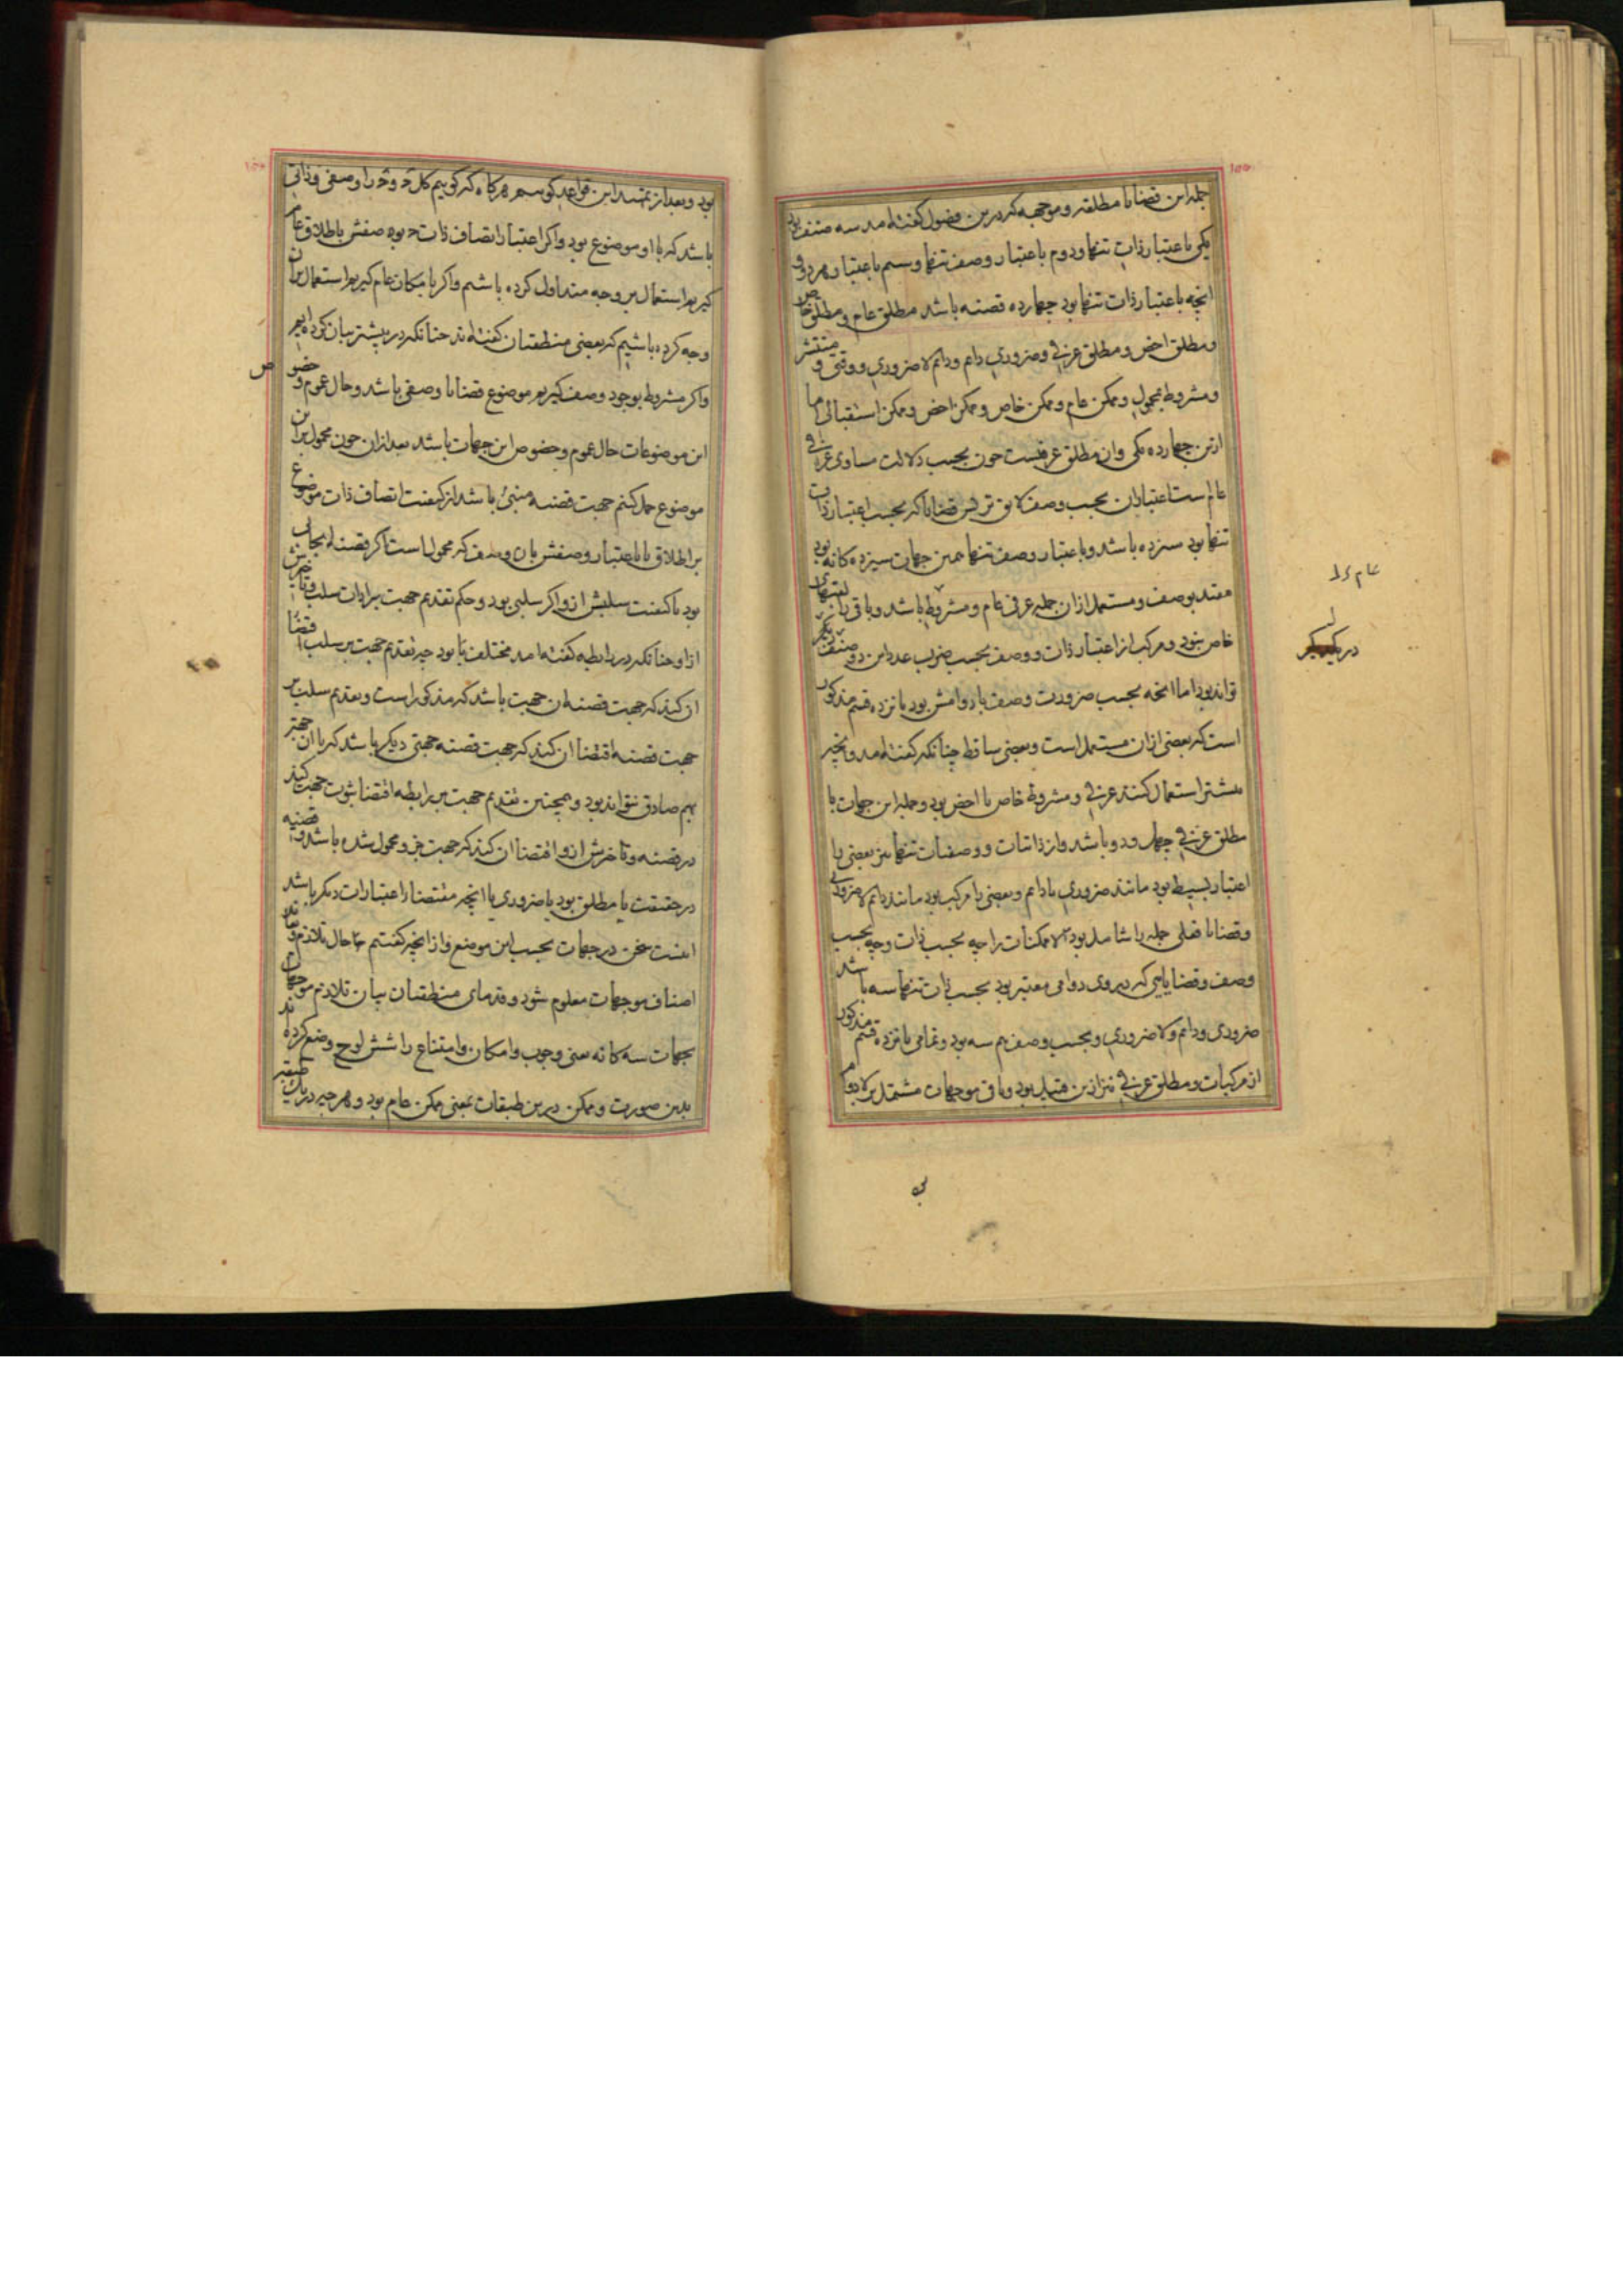 ۱۵۵
جمله این قضایا مطلقه و موجهه که درین فصول گفته آمد سه صنف بود
یکی باعتبار ذات تنها و دوم باعتبار وصف تنها و سیم باعتبار هر دو و
انچه باعتبار ذات تنها بود چهارده قضیه باشد مطلق عام و مطلق خاص
و مطلق اخص و مطلق عرفی و ضروری دایم و دایم لا ضروری و وقتی و منتشر
و مشروط بمحمول و ممکن عام و ممکن خاص و ممکن اخص و ممکن استقبالی اما
ازین چهارده یکی وان مطلق عرفیست چون بحسب دلالت مساوی عرفی
عام ست اعتباران بحسب وصف لایق تر پس قضایا که بحسب اعتبار ذات
تنها بود سیزده باشد و باعتبار وصف تنها همین جهات سیزده کانه بود
مقید بوصف و مستعمل ازان جمله عرفی عام و مشروط باشد و باقی را
خاص نبود و مرکب از اعتبار ذات و وصف بحسب ضرب عدد این دو صنف
تواند بود اما انچه بحسب ضرورت وصف یا دوامش بود پانزده قسم مذکور
است که بعضی ازان مستعمل است و بعضی ساقط چنانکه گفته آمد و انچه
بیشتر استعمال کنند عرفی و مشروط خاص یا اخص بود و جمله این جهات با
مطلق عرفی چهل و دو باشد و از ذاتیات و وصفیات تنها نیز بعضی را
اعتبار بسیط بود مانند ضروری یا دایم و بعضی را مرکب بود مانند دایم لا ضروری
و قضایا فعلی جمله را شامل بود الا ممکنات را چه بحسب ذات و چه بحسب
وصف و قضایایی که در وی دوامی معتبر بود بحسب ذات تنها سه باشد
ضروری و دایم و لا ضروری و بحسب وصف هم سه بود و تمامی پانزده قسم مذکور
از مرکبات و مطلق عرفی نیز ازین قبیل بود و باقی موجهات مشتمل بر لا دوام
بود و بعد از تمهید این قواعد گوییم هر گاه که گوییم کل و را وصفی و ذاتی
باشد که با او موضوع بود و اگر اعتبار اتصاف ذات بوصفش باطلاق عام
گیریم استعمال بر وجه متداول کرده باشیم و اگر بامکان عام گیریم استعمال بران
وجه کرده باشیم که بعضی منطقیان گفته اند چنانکه در پیشتر بیان کرده ایم
و اگر مشروط بوجود وصف گیریم موضوع قضایا وصفی باشد و حال عموم و خصوص
این موضوعات حال عموم و خصوص این جهات باشد بعد ازان چون محمول بران
موضوع حمل کنیم جهت قضیه مبنی باشد از کیفیت اتصاف ذات موضوع
بر اطلاق یا باعتبار وصفش بان وصف که محمول است اگر قضیه ایجابی
بود یا کیفیت سلبش ازو اگر سلبی بود و حکم تقدیم جهت بر ادات سلب و تاخیرش
ازو چنانکه در رابطه گفته آمد مختلف بود چه تقدیم جهت بر سلب اقتضا
ان کند که جهت قضیه ان جهت باشد که مذکور است و تقدیم سلب بر
جهت قضیه اقتضا ان کند که جهت قضیه جهتی دیگر باشد که با ان جهت
بهم صادق نتواند بود و همچنین تقدیم جهت بر رابطه اقتضا ثبوت جهت کند
در قضیه و تاخرش ازو اقتضا ان کند که جهت جزو محمول شده باشد و قضیه
در حقیقت یا مطلق بود یا ضروری یا انچه مقتضا اعتبارات دیگر باشد
اینست سخن در جهات بحسب این موضع و از انچه گفتیم حال تلازم و تعاند
اصناف موجهات معلوم شود و قدمای منطقیان بیان تلازم موجهات
بجهات سه کانه یعنی وجوب و امکان و امتناع را شش لوح وضع کرده اند
بدین صورت و ممکن درین طبقات بمعنی ممکن عام بود و هر چه در یک طبقه